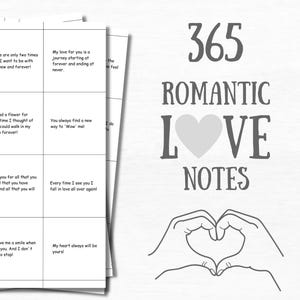 e are only two times
I want to be with
now and forever!
My love for you is a
journey starting at
forever and ending at
never.
he
feel
ad a flower for
time I thought of
could walk in my
forever!
You always find a new
way to 'Wow' me!
do
you for all that you
that you have
and all that you will
Every time I see you I
fall in love all over again!
ve me a smile when
ou. And I don't
s stop!
My heart always will be
yours!
365
ROMANTIC
LOVE
NOTES